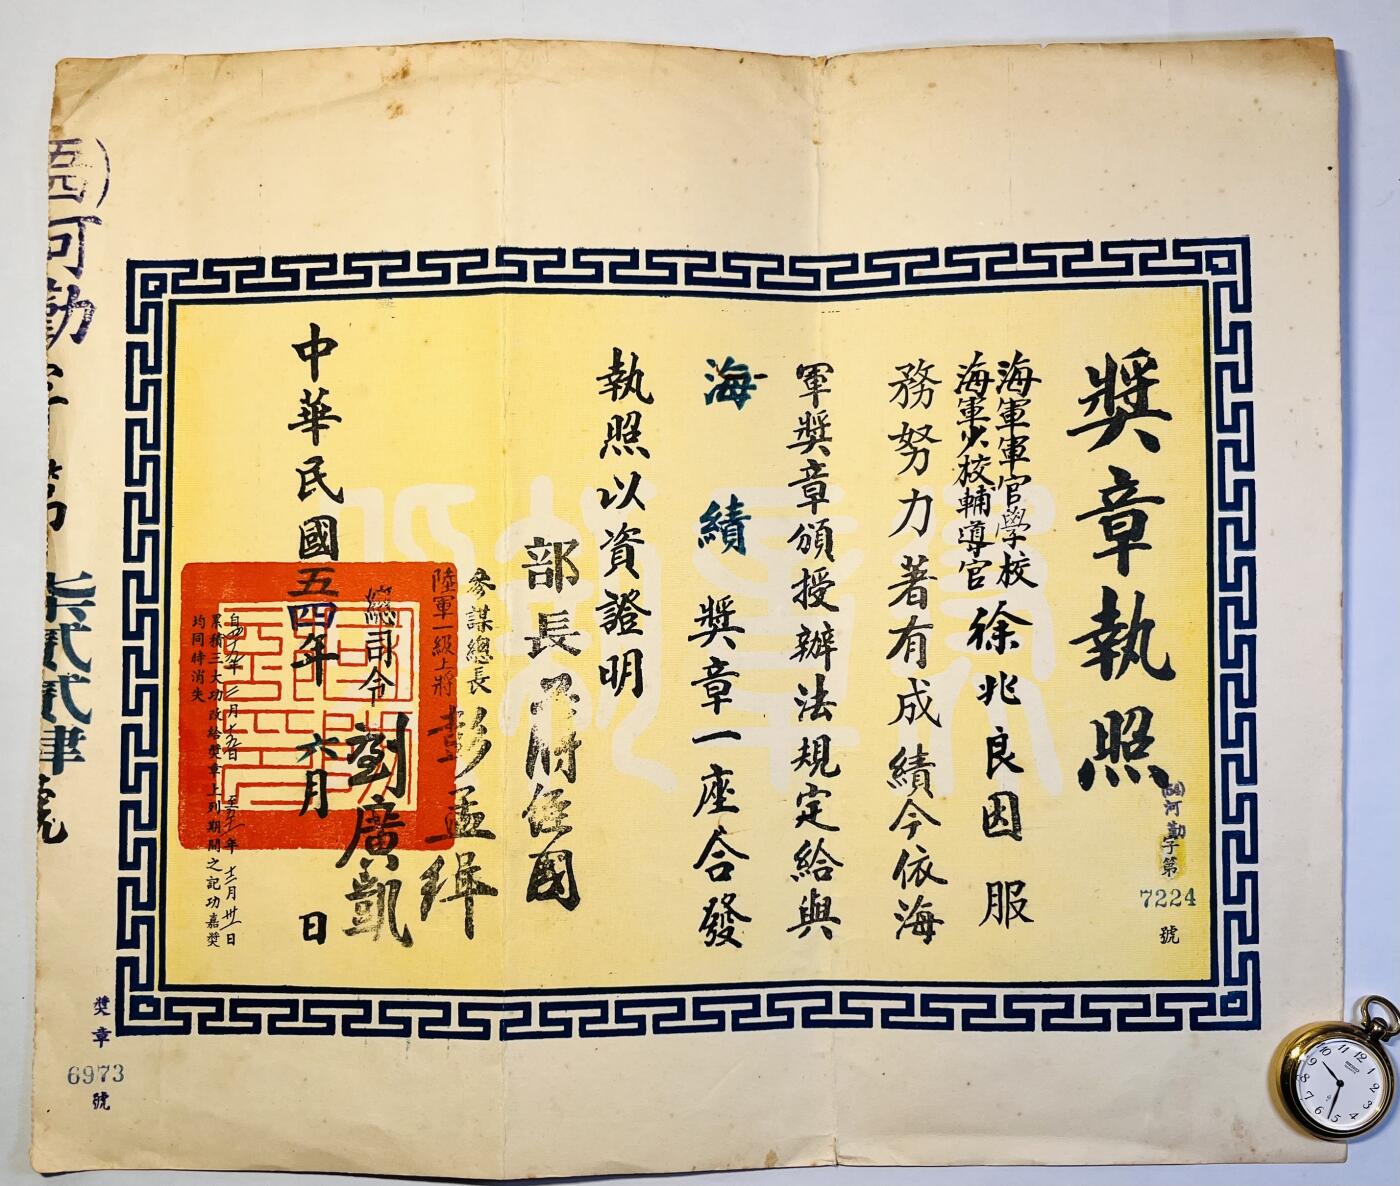 獎章執照
(54)河勤字第
7224
號
海軍軍官學校
海軍少校輔導官
徐兆良因服
務努力著有成績今依海
軍獎章頒授辦法規定給與
海績獎章一座合發
執照以資證明
部長
參謀總長
陸軍一級上將彭孟緝
總司令劉廣凱
中華民國五四年六月日
年十二月卅一日
累積三大功改給獎章上列期間之記功嘉獎
均同時消失
河勤字第柒貳貳肆號
獎章
6973
號
SEIKO
12
1
2
3
4
5
6
7
8
9
10
11